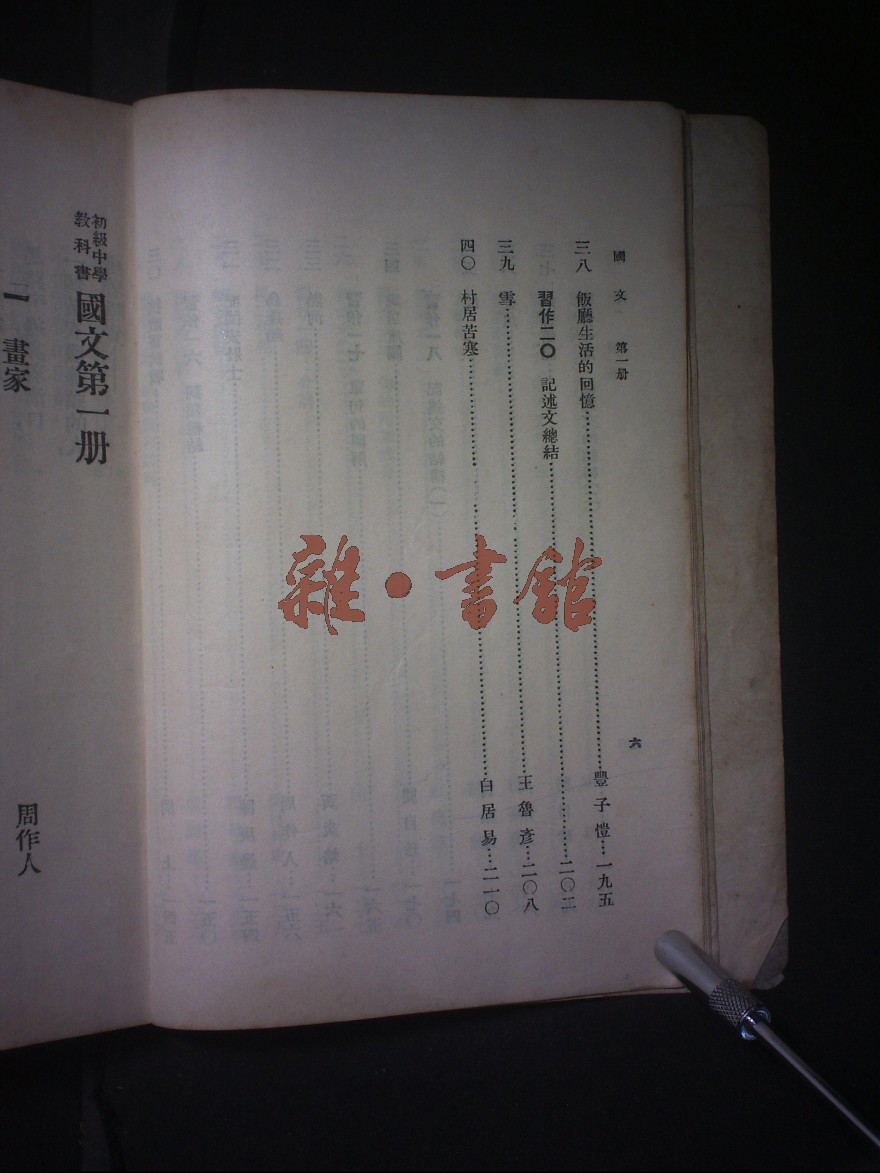 國文 第一册
六
三八 飯廳生活的回憶……豐子愷…一九五
習作二〇 記述文總結……二〇二
三九 雪……王魯彥…二〇八
四〇 村居苦寒……白居易…二一〇
初級中學
教科書
國文第一册
一 畫家
周作人
雜·書館